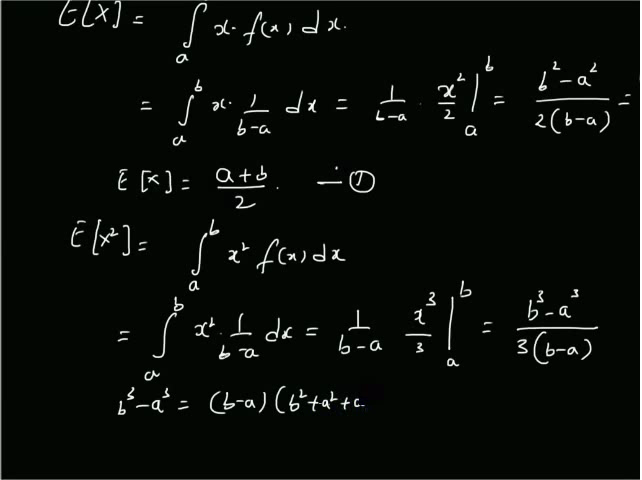 E[X] = ∫ₐ x· f(x) dx.
= ∫ₐᵇ x· 1/(b-a) dx = 1/(b-a) · x²/2 |ₐᵇ = (b²-a²)/(2(b-a)) =
E[X] = (a+b)/2. — ①
E[X²] = ∫ₐᵇ x² f(x) dx
= ∫ₐᵇ x²· 1/(b-a) dx = 1/(b-a) x³/3 |ₐᵇ = (b³-a³)/(3(b-a))
b³-a³ = (b-a) (b²+a²+